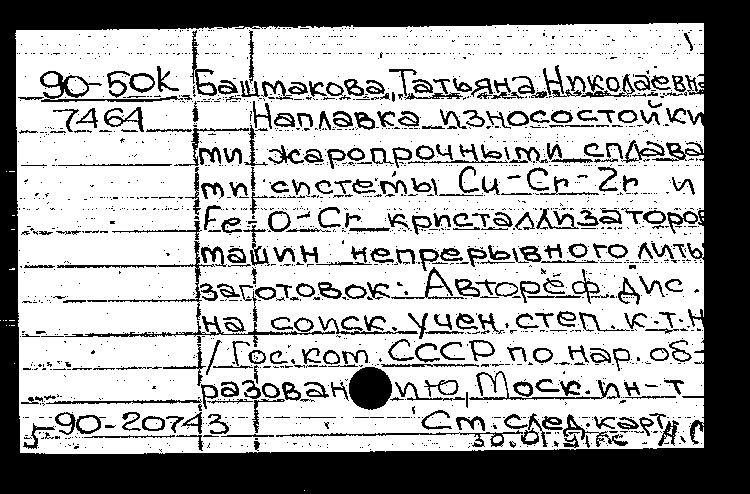 90-50к Башмакова, Татьяна Николаевна
7464 Наплавка износостойки
ми жаропрочными сплава
ми системы Cu-Cr-Zr и
Fe-O-Cr кристаллизаторов
машин непрерывного литья
заготовок: Автореф. дис.
на соиск. учен. степ. к.т.н
/ Гос. ком. СССР по нар. об-
разован ию, Моск. ин-т
5-90-20743 См. след. карт.
30.01.91